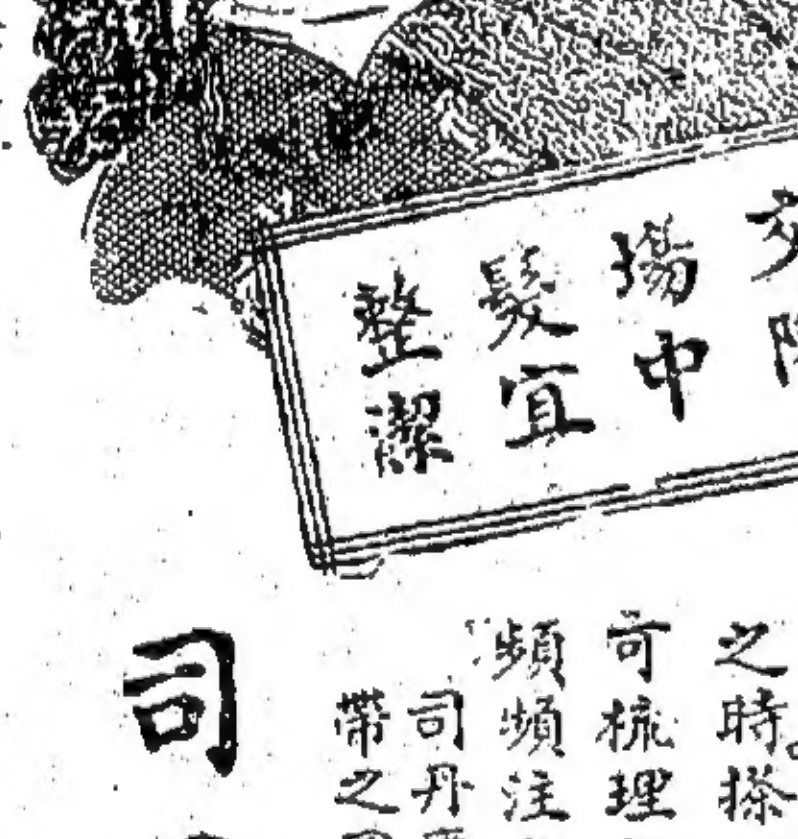 交際
場中
髮宜
整潔
之時搽
可梳理
頻頻注
司丹
帶之
司